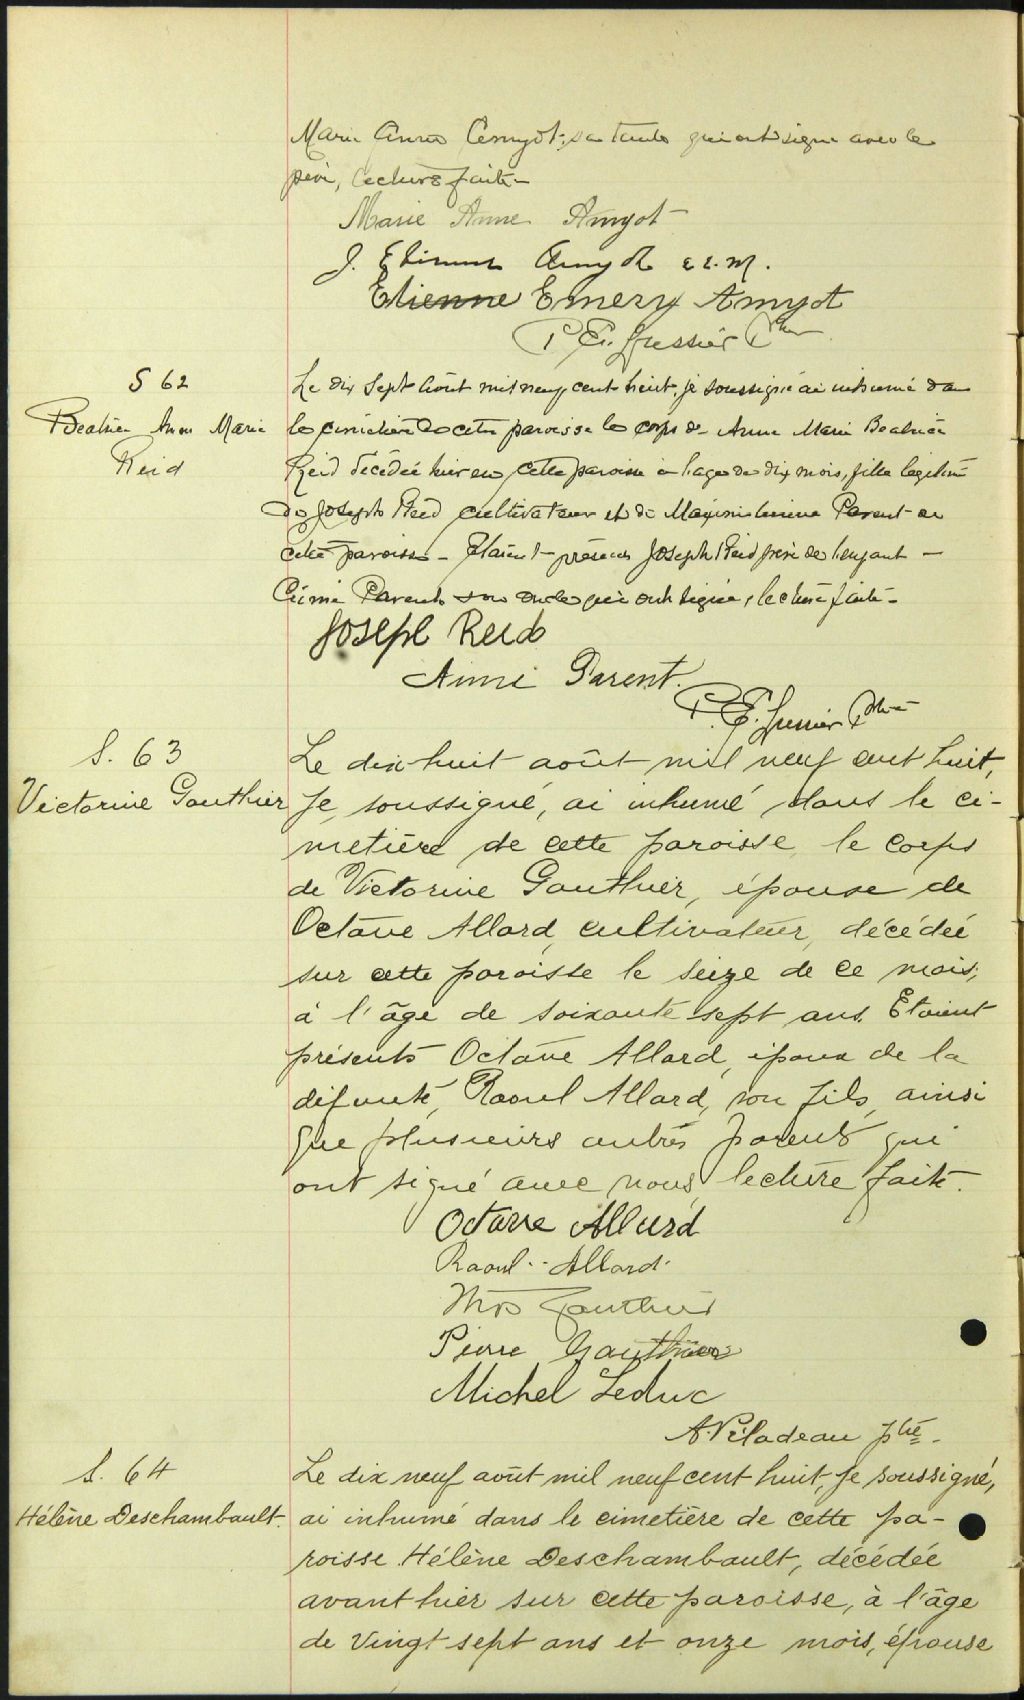 Marie Anna Amyot, sa tante qui ont signé avec le
père, lecture faite -
Marie Anne Amyot
J. Etienne Amyot e.e.m.
Etienne Emery Amyot
P. E. Lussier Ptre
S 62
Beatrice Anne Marie
Reid
Le dix sept Août mil neuf cent huit, je soussigné ai inhumé dans
le cimetière de cette paroisse le corps de Anne Marie Beatrice
Reid décédée hier en cette paroisse à l'age de dix mois, fille légitime
de Joseph Reid cultivateur et de Parent de
cette paroisse - Etaient présents Joseph Reid père de l'enfant -
Aimé Parent son oncle qui ont signé, lecture faite -
Joseph Reid
Aimé Parent.
P. E. Lussier Ptre
S. 63
Victorine Gauthier
Le dix-huit août mil neuf cent huit,
Je, soussigné, ai inhumé dans le ci-
metière de cette paroisse, le corps
de Victorine Gauthier, épouse de
Octave Allard, cultivateur, décédée
sur cette paroisse le seize de ce mois,
à l'âge de soixante-sept ans. Etaient
présents Octave Allard, époux de la
défunte, Raoul Allard, son fils, ainsi
que plusieurs autres parents qui
ont signé avec nous, lecture faite.
Octave Allard
Raoul Allard
Gauthier
Pierre Gauthier
Michel Leduc
A. Piladeau ptre.
S. 64
Hélène Deschambault.
Le dix neuf août mil neuf cent huit, Je soussigné,
ai inhumé dans le cimetière de cette pa-
roisse Hélène Deschambault, décédée
avant hier sur cette paroisse, à l'âge
de vingt sept ans et onze mois, épouse